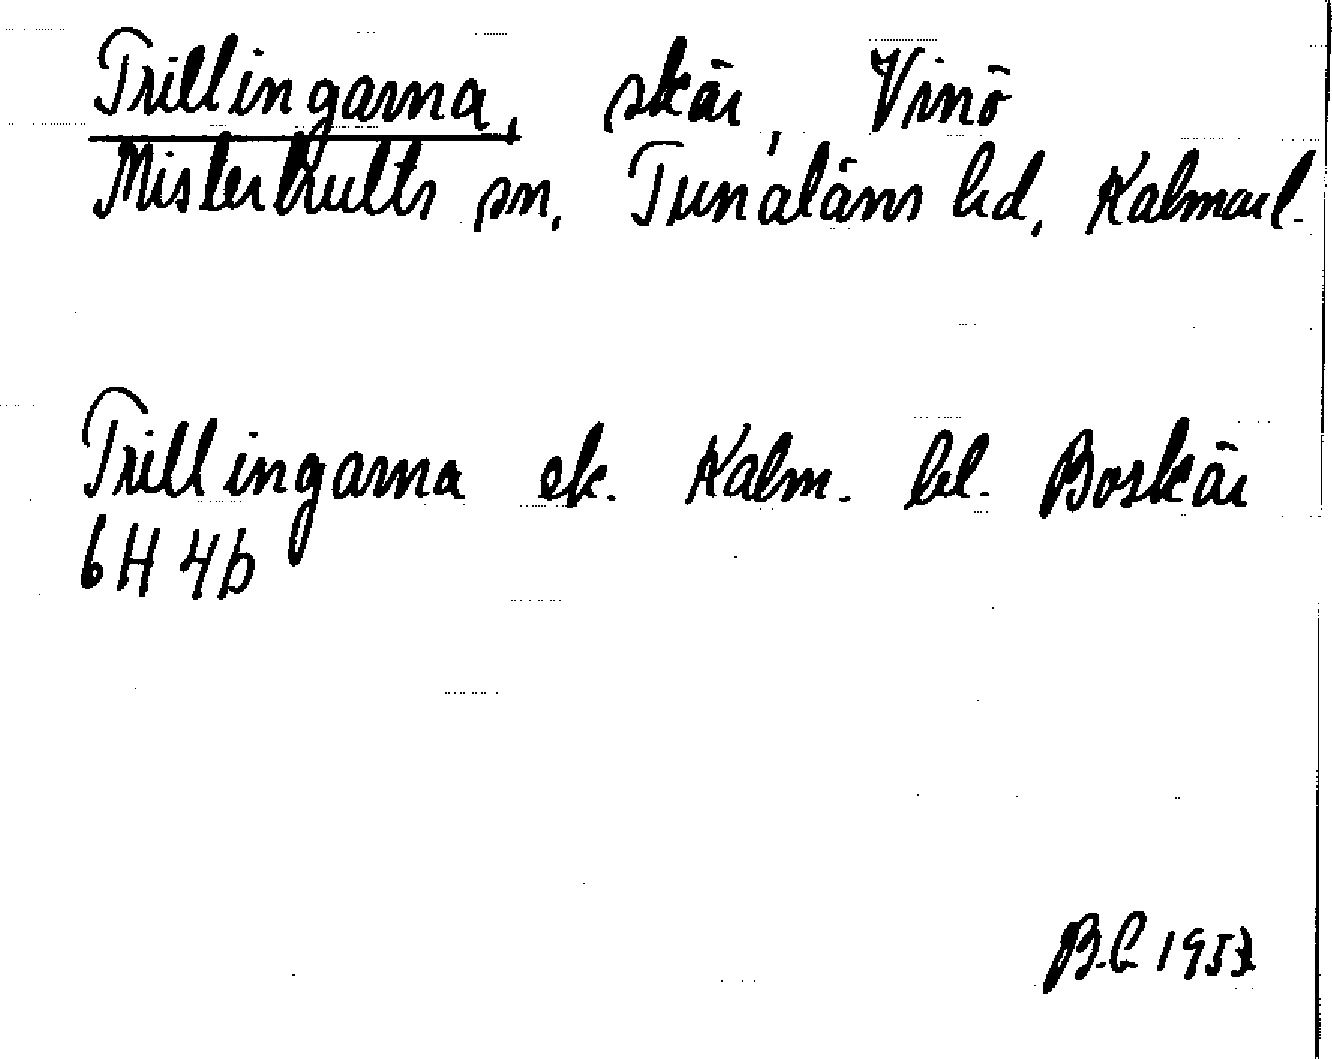 Trillingarna, skär, Vinö
Misterhults sn. Tunaläns hd. Kalmar l.
Trillingarna ek. Kalm. bl. Boskär
6H 4b
B.L. 1953